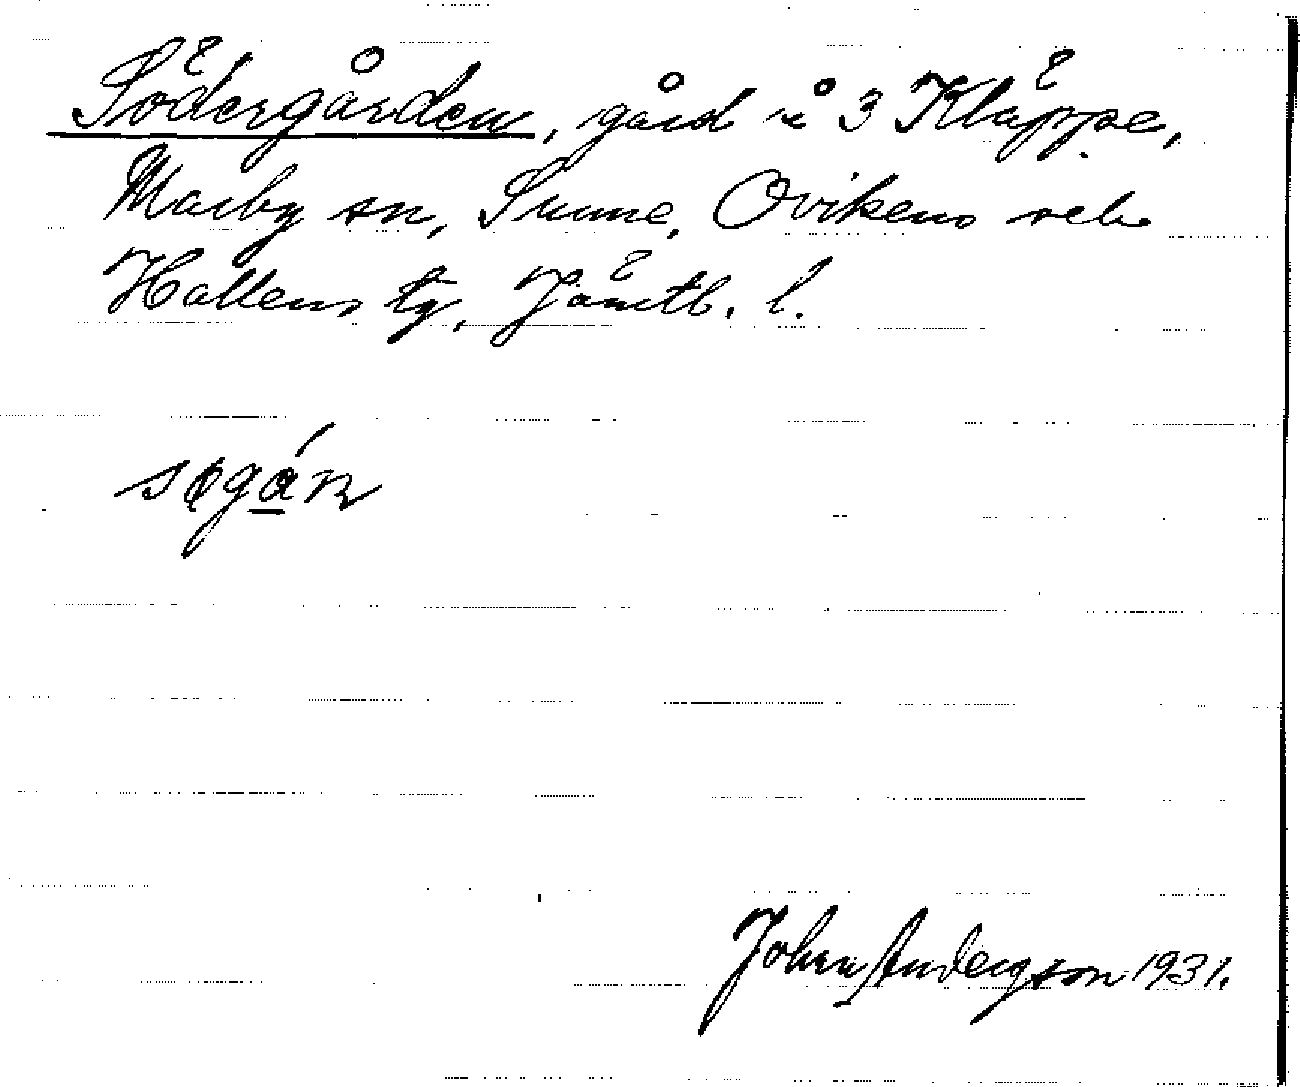 Södergården, gård å 3 Kläppe,
Marby sn, Sunne, Ovikens och
Hallens tg, Jämtl. l.
søgá̱ɴ
Johan Andersson 1931.